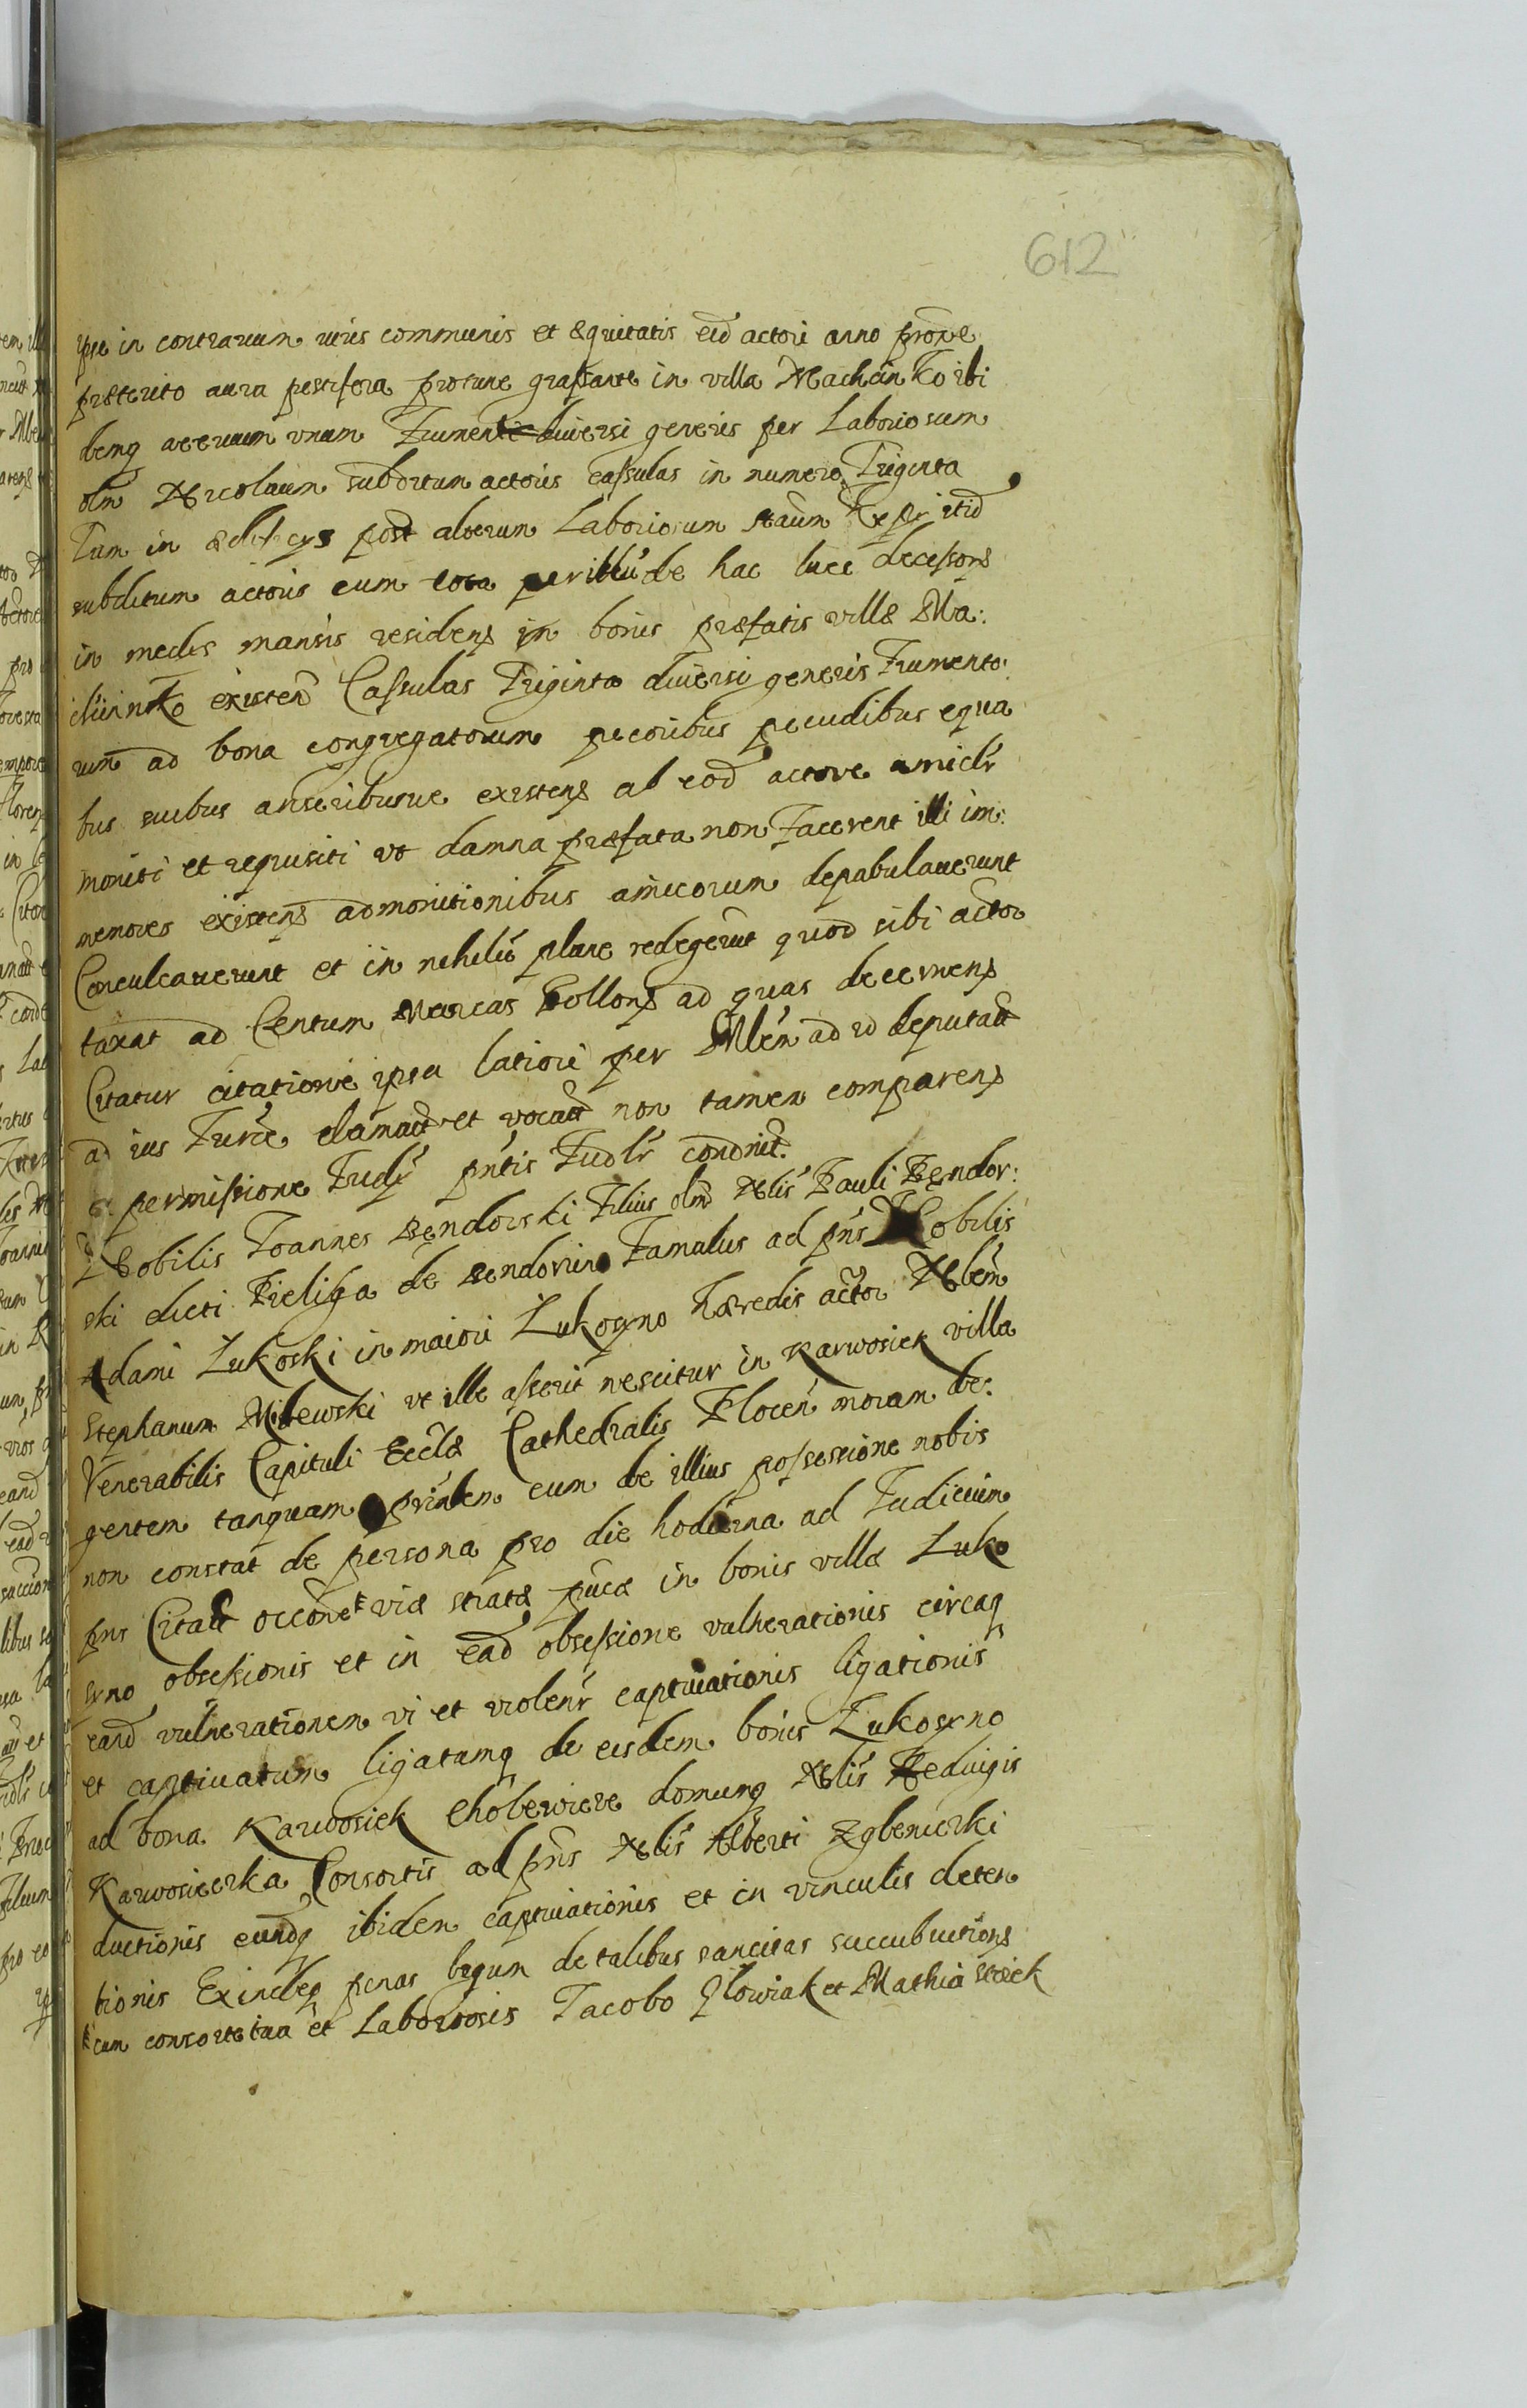 612
ipse in contrarium iuris communis et æquitatis eid actori anno proxe
præterito aura pestifera protunc grassante in villa Machcin ko ibi
demq aceruum vnum Frumenti diuersi generis per Laboriosum
olim Nicolaum subditum actoris cassulas in numero Triginta
Tum in ædificys post alterum Laboriosum itid
subditum actoris cum tota de hac luce decessons
in medis mansis residens in bonis præfatis villæ Ma:
existen Cassulas Triginta diuersi generis Frumento:
rum ad bona congregatorum pecoribus pecudibus equa
bus suibus anseribusue existens ab eod actore amiclr
moniti et requisiti vt damna præfata non Facerent illi im:
memores existens admonitionibus amicorum depabulauerunt
Conculcauerunt et in nihilu plane redegerunt quod sibi actor
taxat ad Centum Marcas Pollons ad quas decernens
Citatur citatione ipsa latiori per Mlem ad id deputat
ad ius Ture clamat et vocat non tamen comparens
ex permissione Iudy pntis Iudlr condnit.
Nobilis Ioannes Bendorski Filius olim Nlis Pauli Bendor:
ski dicti Pieliga de Bendorzino Famulus ad pns Nobilis
Adami Lukoski in maiori Lukoszno hæredis actor Nblem
Stephanum Milewski vt ille asserit nescitur in Karwosiek villa
Venerabilis Capituli Ecclæ Cathedralis Plocen moram de:
gentem tanquam cum de illius possessione nobis
non constat de persona pro die hodierna ad Iudicium
pns Citat occone viæ stratæ pucæ in bonis villæ Luko
szno obsessionis et in ead obsessione vulnerationis circaq
eand vulnerationem vi et violenr captiuationis ligationis
et captiuatum ligatumq de eisdem bonis Lukoszno
ad bona Karwosiek Cholewice domumq Nlis Heduigis
Karwosiecka Consortis ad pns Nlis Alberti Zglenicki
ductionis eundq ibidem captiuationis et in vinculis deten
tionis Exindeq penas legum de talibus sancitas succubuctions
cum consorte tua et Laboriosis Iacobo Glowiak et Mathia